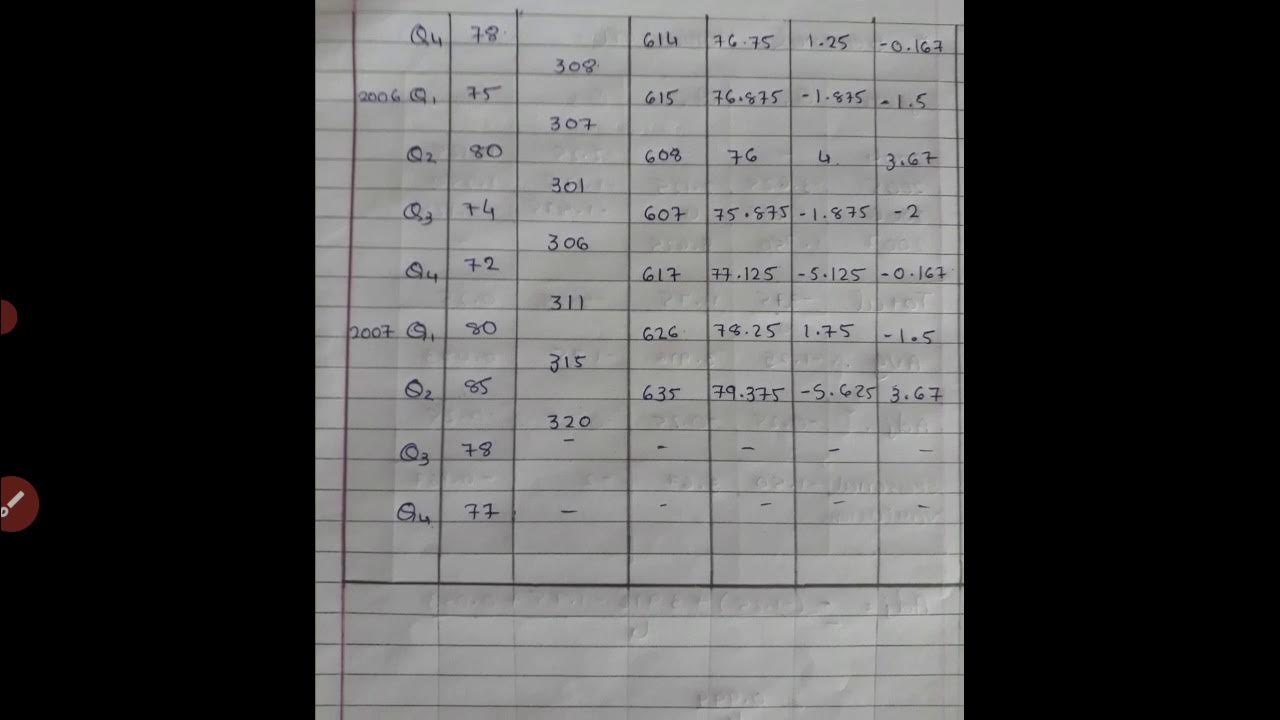 Q4 78 614 76.75 1.25 -0.167
308
2006 Q1 75 615 76.875 -1.875 -1.5
307
Q2 80 608 76 4 3.67
301
Q3 74 607 75.875 -1.875 -2
306
Q4 72 617 77.125 -5.125 -0.167
311
2007 Q1 80 626 78.25 1.75 -1.5
315
Q2 85 635 79.375 -5.625 3.67
320
Q3 78 - - - - -
Q4 77 - - - - -